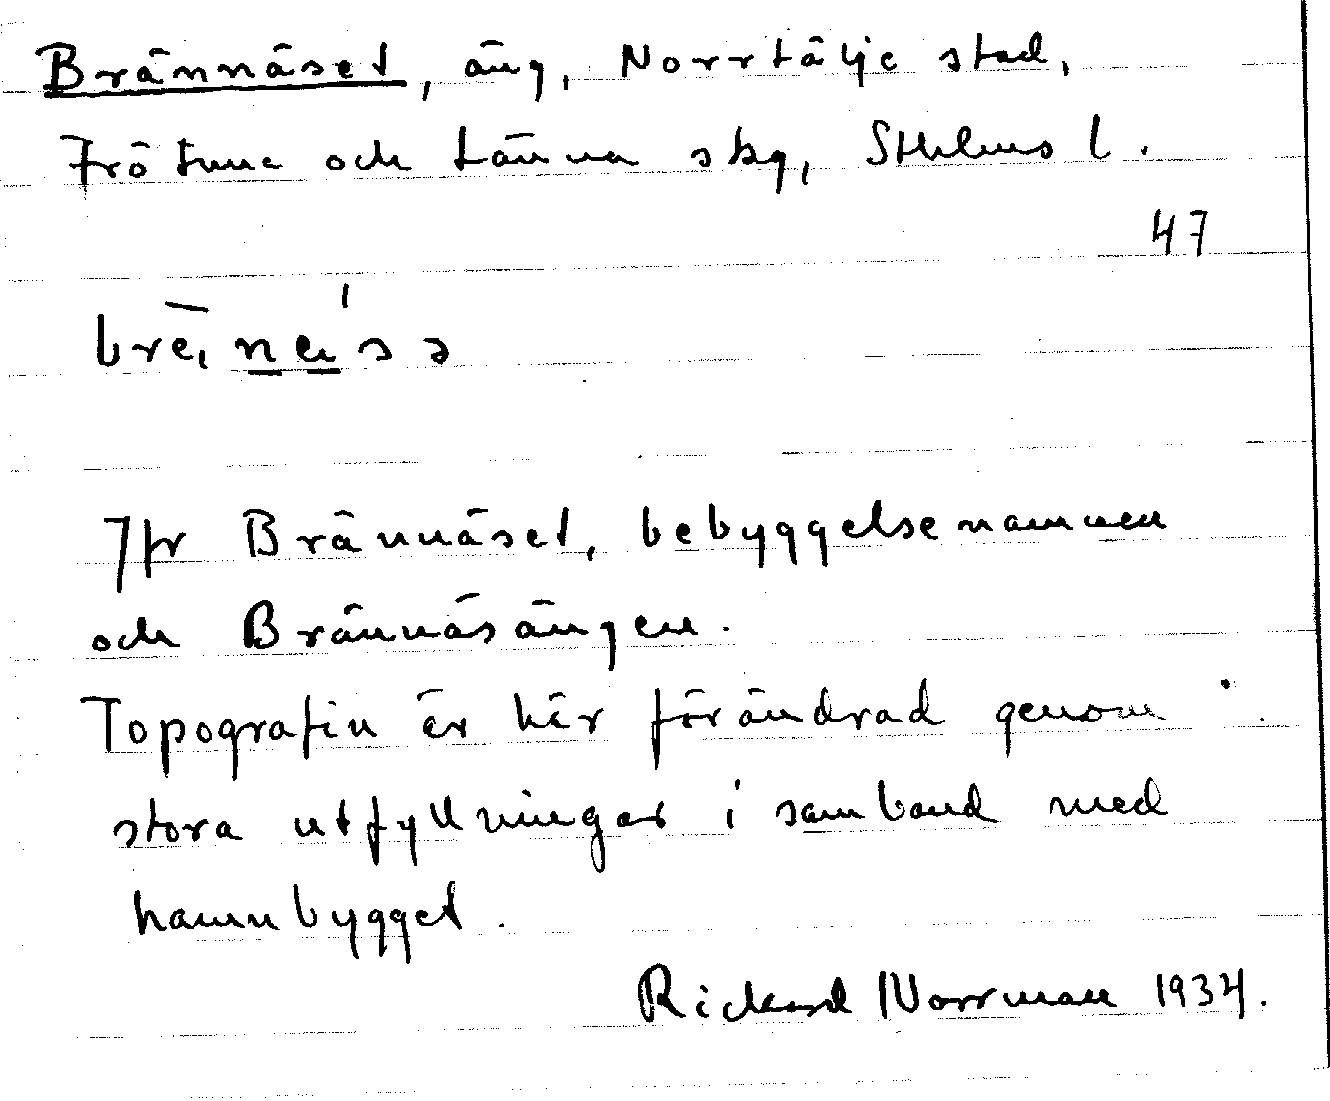 Brännäset, äng, Norrtälje stad,
Frötuna och Länna skg, Sthlms l.
47
Jfr Brännäset, bebyggelsenamnen
och Brännäsängen.
Topografin är här förändrad genom
stora utfyllningar i samband med
hamnbygget.
Rickard Norrman 1934.